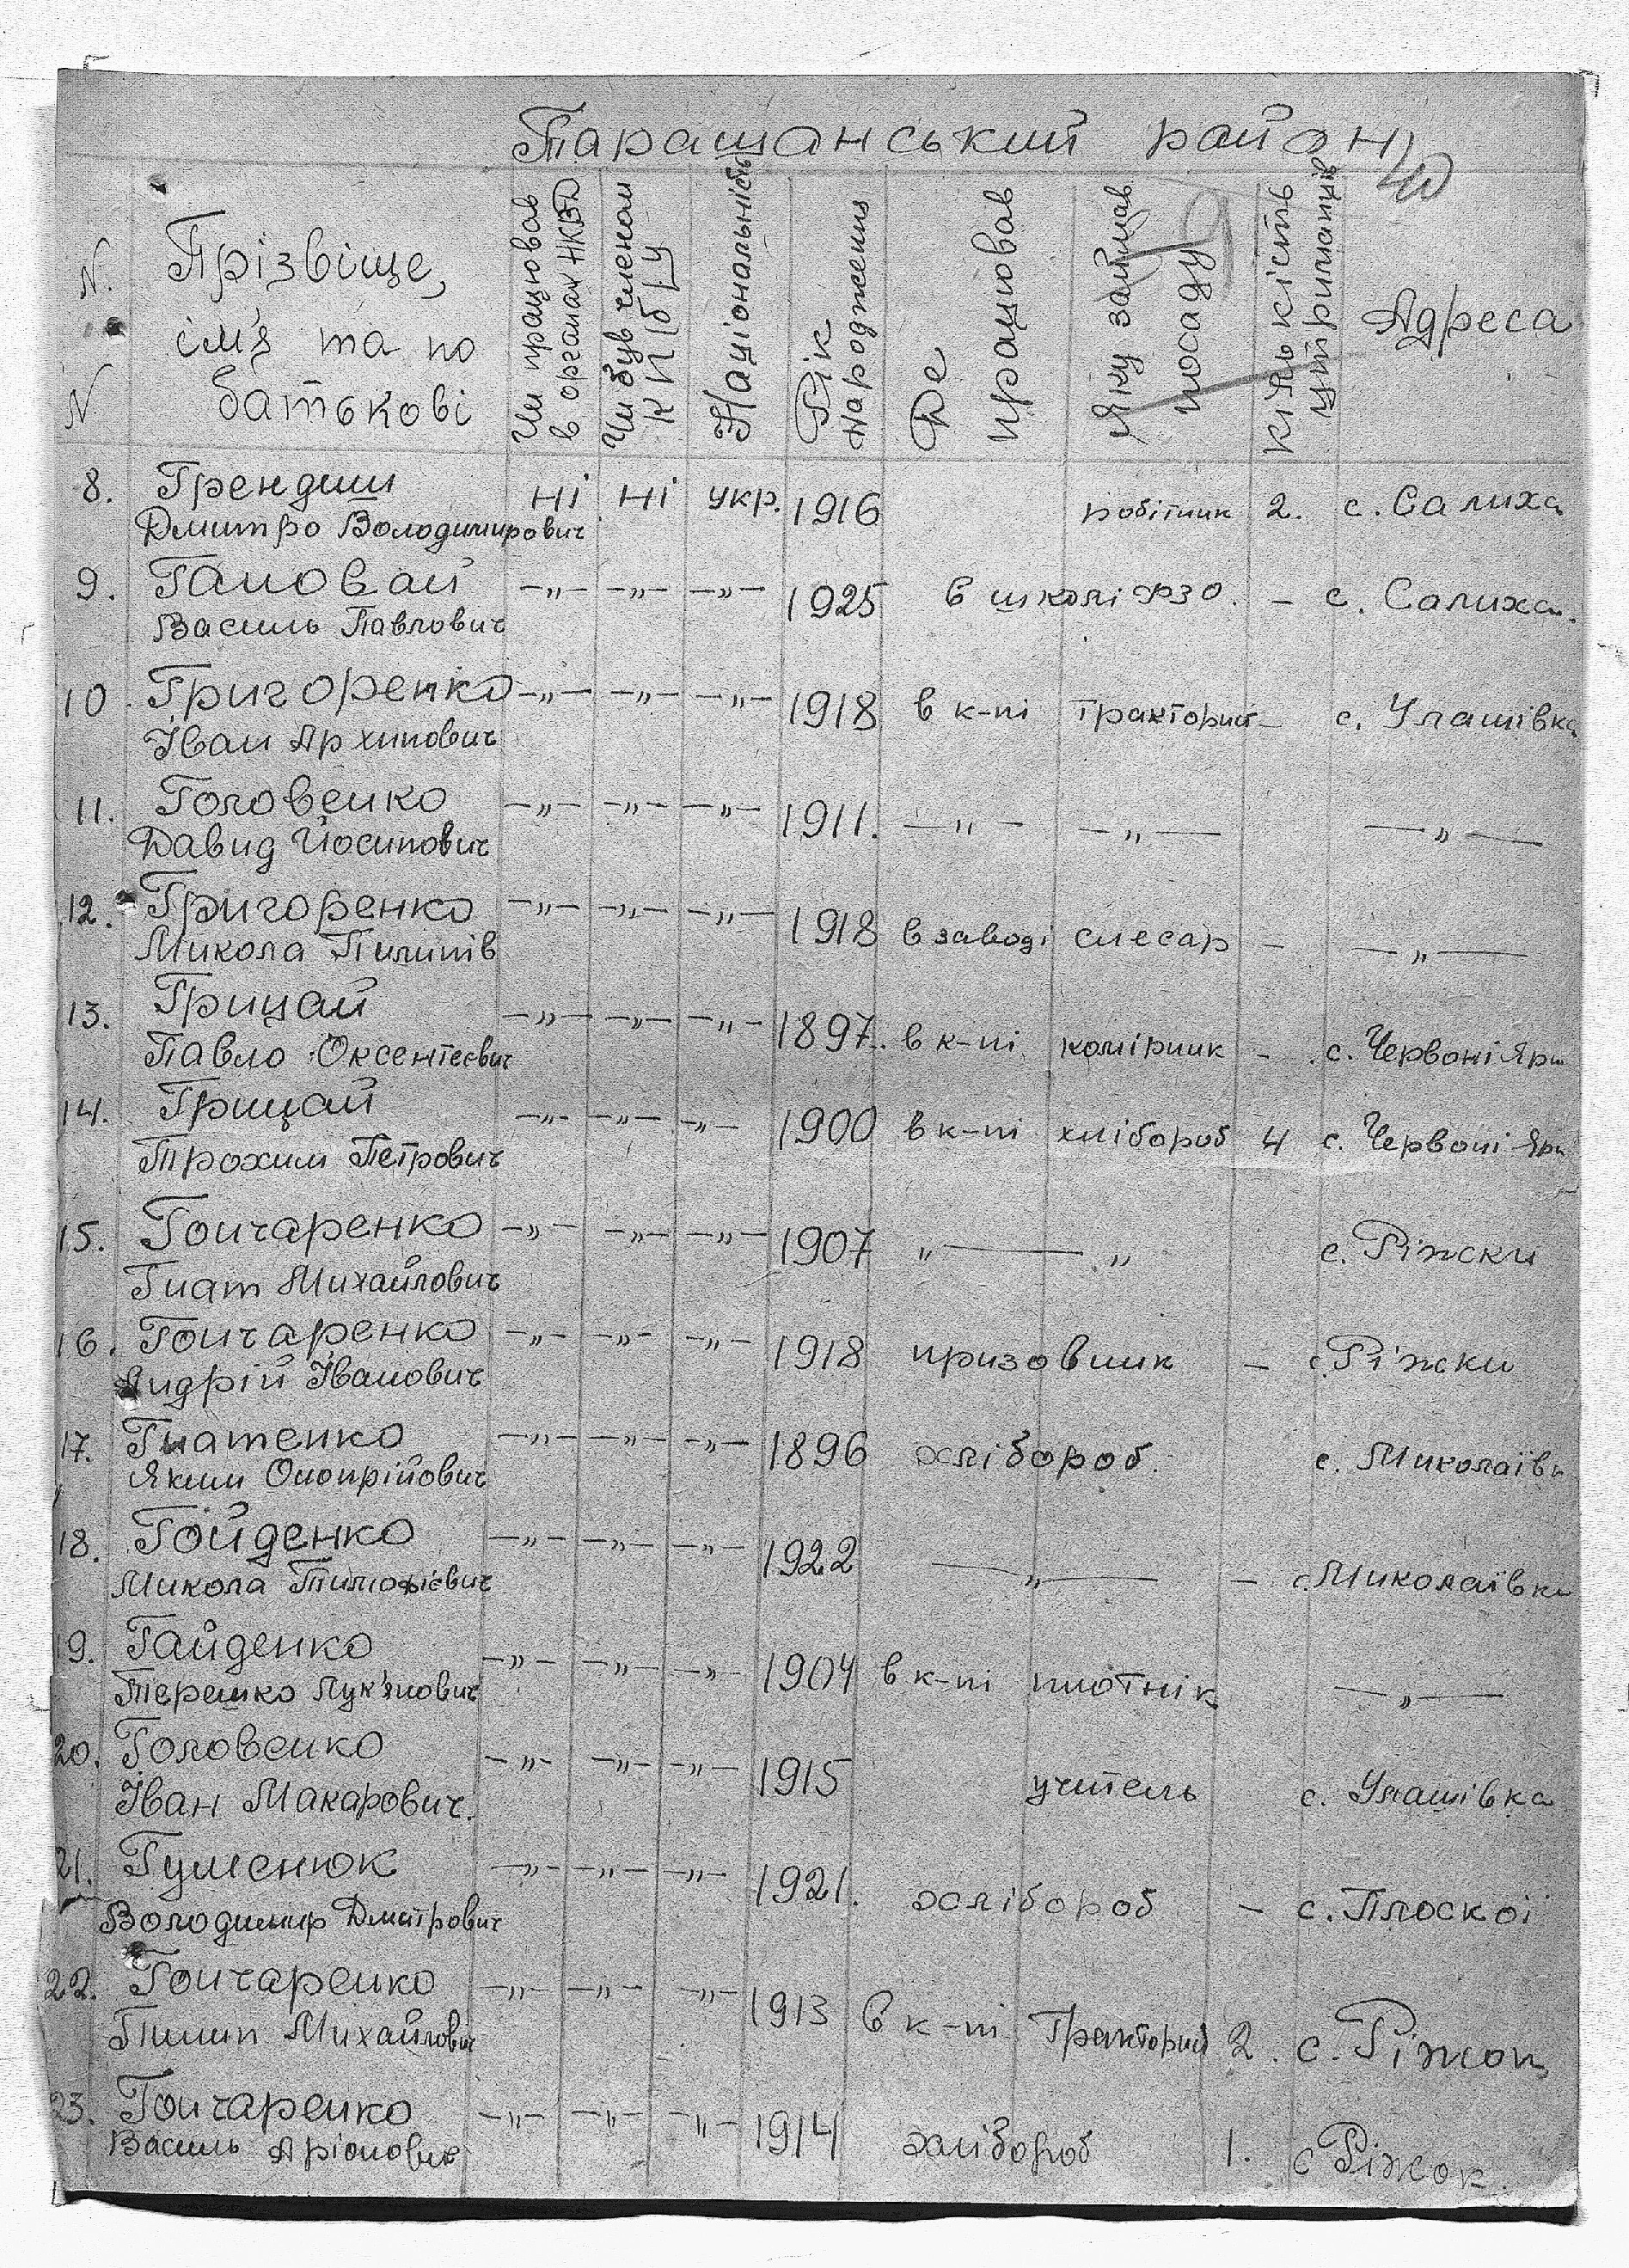 Таращанський район
N. N
Прізвіще,
ім'я та по
батькові
Чи працював
в органах НКВД
Чи був членом
КП(б)У
Національність
Рік
народження
Де
працював
Яку займав
посаду
Кількість
утриманців
Адреса
8. Грендиш ні ні укр. 1916 робітник 2. с. Салиха
Дмитро Володимирович
9. Гановай -"- -"- -"- 1925 в школі ФЗО. - с. Салиха.
Василь Павлович
10 Григоренко -"- -"- -"- 1918 в к-пі тракторист - с. Улашівка
Іван Архипович
11. Головенко -"- -"- -"- 1911. -"- -"- -"-
Давид Йосипович
12. Григоренко -"- -"- -"- 1918 в заводі слесар - -"-
Микола Пилипів
13. Грицай -"- -"- -"- 1897. в к-пі комірник - с. Червоні Яри
Павло Оксентеєвич
14. Грицай -"- -"- -"- 1900 в к-пі хлібороб 4 с. Червоні Яри
Трохим Петрович
15. Гончаренко -"- -"- -"- 1907 "———" с. Ріжки
Гнат Михайлович
16. Гончаренко -"- -"- -"- 1918 призовник - с. Ріжки
Андрій Іванович
17. Гнатенко -"- -"- -"- 1896 хлібороб. с. Миколаївк
Яким Онопрійович
18. Гойденко -"- -"- -"- 1922 -"- - с. Миколаївка
Микола Тимофієвич
19. Гайденко -"- -"- -"- 1904 в к-пі плотнік -"-
Терешко Лук'янович
20. Головенко -"- -"- -"- 1915 учитель с. Улашівка
Іван Макарович.
21. Гуменюк -"- -"- -"- 1921. хлібороб - с. Плоскої
Володимир Дмитрович
22. Гончаренко -"- -"- -"- 1913 в к-пі тракторист 2. с. Ріжок
Пилип Михайлович
23. Гончаренко -"- -"- -"- 1914 хлібороб 1. с Ріжок.
Василь Аріонович